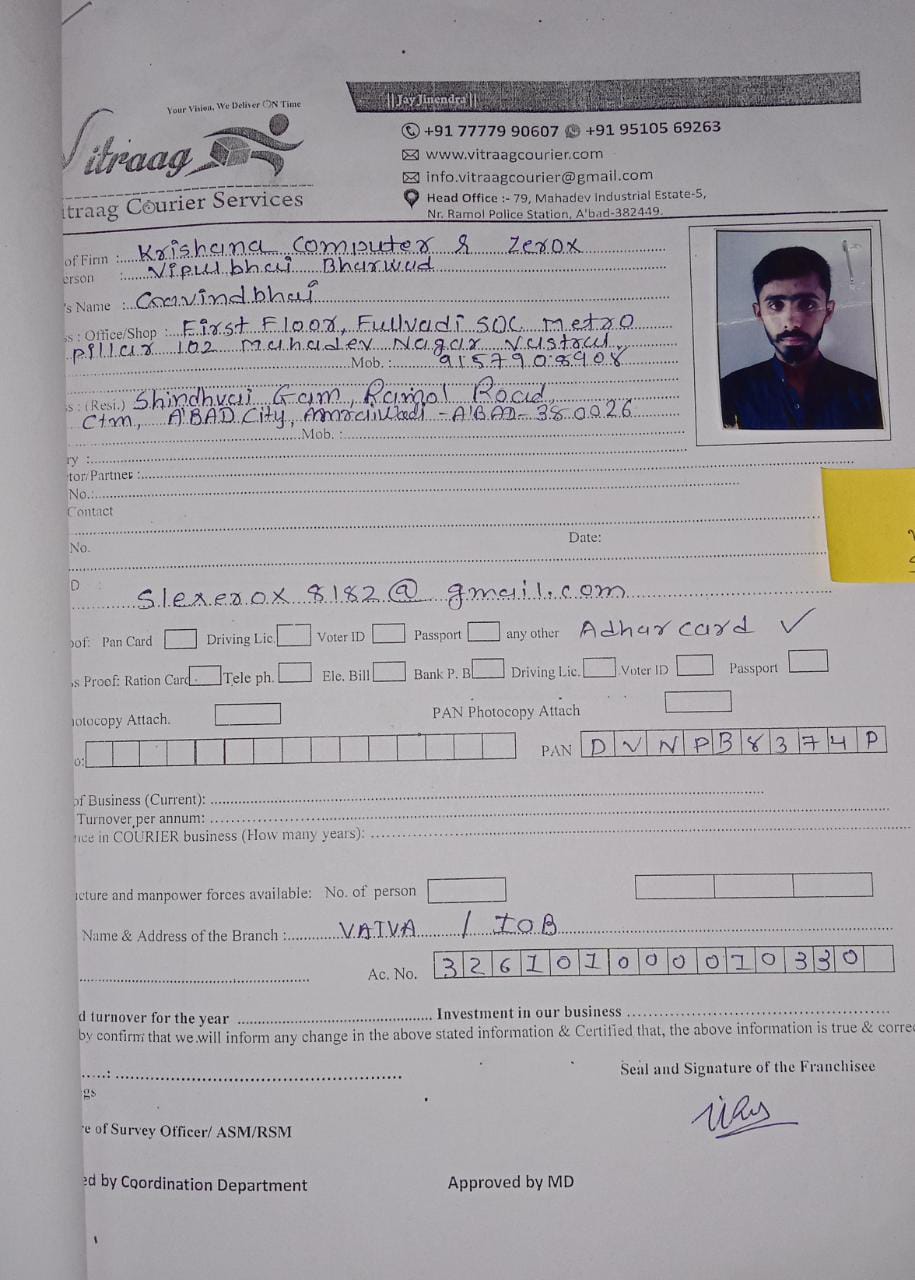 Your Vision, We Deliver ON Time
||Jay Jinendra||
Vitraag
itraag Courier Services
+91 77779 90607 +91 95105 69263
www.vitraagcourier.com
info.vitraagcourier@gmail.com
Head Office :- 79, Mahadev Industrial Estate-5,
Nr. Ramol Police Station, A'bad-382449.
of Firm : Krishana Computer & Zerox
erson : Vipulbhai Bharwad
's Name : Govindbhai
ss : Office/Shop : First Floor, Fullvadi SOC Metro
pillar 102 Mahadev Nagar Vastral,
Mob. : 9157908908
ss : (Resi.) Shindhvai Gam, Ramol Road,
Ctm, A'BAD City, Amraiwadi - A'BAD- 380026
Mob. :
ry :
tor/Partner :
No.:
Contact
No. Date:
D
Slexerox8182@gmail.com
oof: Pan Card Driving Lic. Voter ID Passport any other Adhar card ✓
ss Proof: Ration Card Tele ph. Ele. Bill Bank P. B Driving Lic. Voter ID Passport
hotocopy Attach. PAN Photocopy Attach
o: PAN DVNPB8374P
of Business (Current):
Turnover per annum:
nce in COURIER business (How many years):
ucture and manpower forces available: No. of person
Name & Address of the Branch : VATVA / IOB
Ac. No. 326101000010330
d turnover for the year Investment in our business
by confirm that we will inform any change in the above stated information & Certified that, the above information is true & corre
Seal and Signature of the Franchisee
gs
re of Survey Officer/ ASM/RSM
ed by Coordination Department Approved by MD